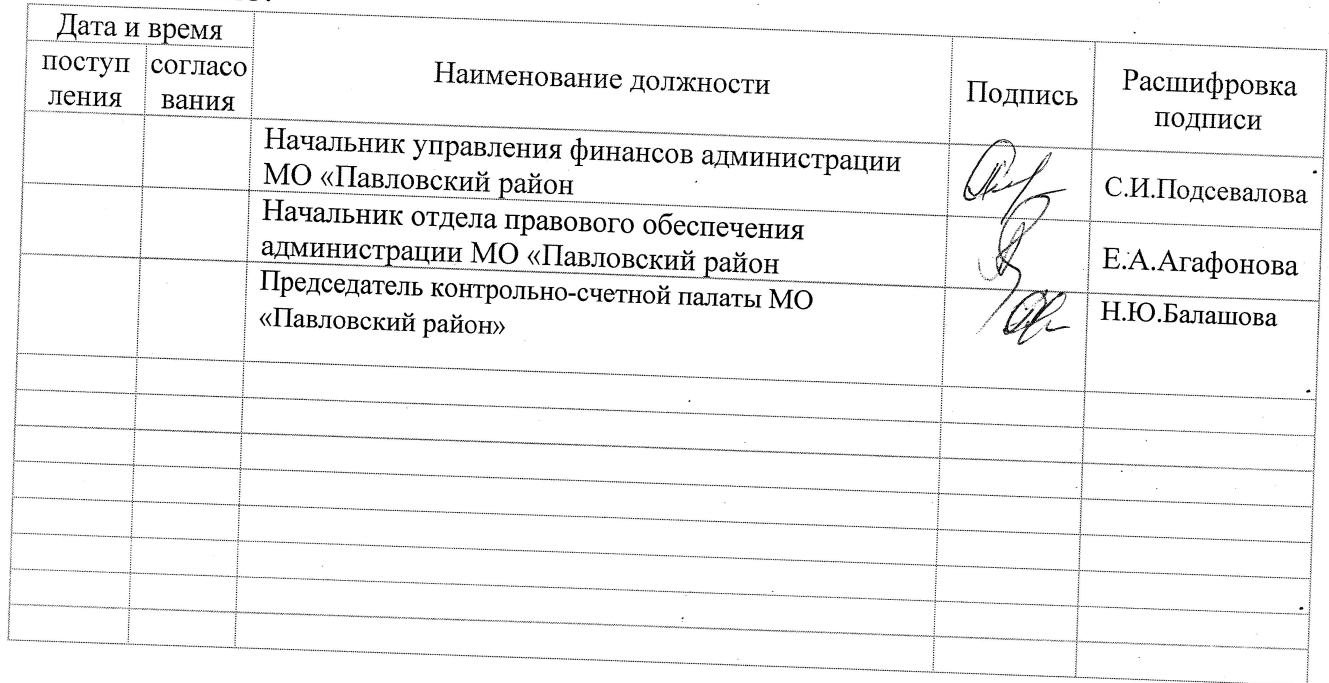 Дата и время
поступ
ления
согласо
вания
Наименование должности
Подпись
Расшифровка
подписи
Начальник управления финансов администрации
МО «Павловский район
С.И.Подсевалова
Начальник отдела правового обеспечения
администрации МО «Павловский район
Е.А.Агафонова
Председатель контрольно-счетной палаты МО
«Павловский район»
Н.Ю.Балашова